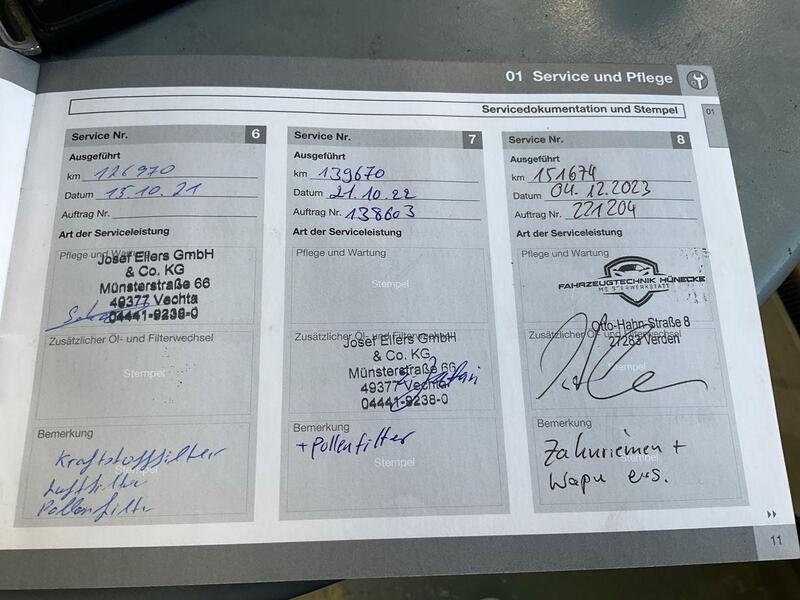 01 Service und Pflege
Servicedokumentation und Stempel
01
Service Nr. 6
Ausgeführt
km 126970
Datum 15.10.21
Auftrag Nr.
Art der Serviceleistung
Pflege und Wartung
Josef Ellers GmbH
& Co. KG
Münsterstraße 66
49377 Vechta
04441-9238-0
Zusätzlicher Öl- und Filterwechsel
Stempel
Bemerkung
Stempel
Kraftstofffilter
Luftfilter
Pollenfilter
Service Nr. 7
Ausgeführt
km 139670
Datum 21.10.22
Auftrag Nr. 138603
Art der Serviceleistung
Pflege und Wartung
Stempel
Zusätzlicher Öl- und Filterwechsel
Josef Ellers GmbH
& Co. KG
Münsterstraße 66
49377 Vechta
04441-9238-0
Bemerkung
+Pollenfilter
Stempel
Service Nr. 8
Ausgeführt
km 151674
Datum 04.12.2023
Auftrag Nr. 221204
Art der Serviceleistung
Pflege und Wartung
FAHRZEUGTECHNIK HÜNECKE
MEISTERWERKSTATT
Otto-Hahn-Straße 8
27283 Verden
Zusätzlicher Öl- und Filterwechsel
Stempel
Bemerkung
Stempel
Zahnriemen +
Wapu ers.
11